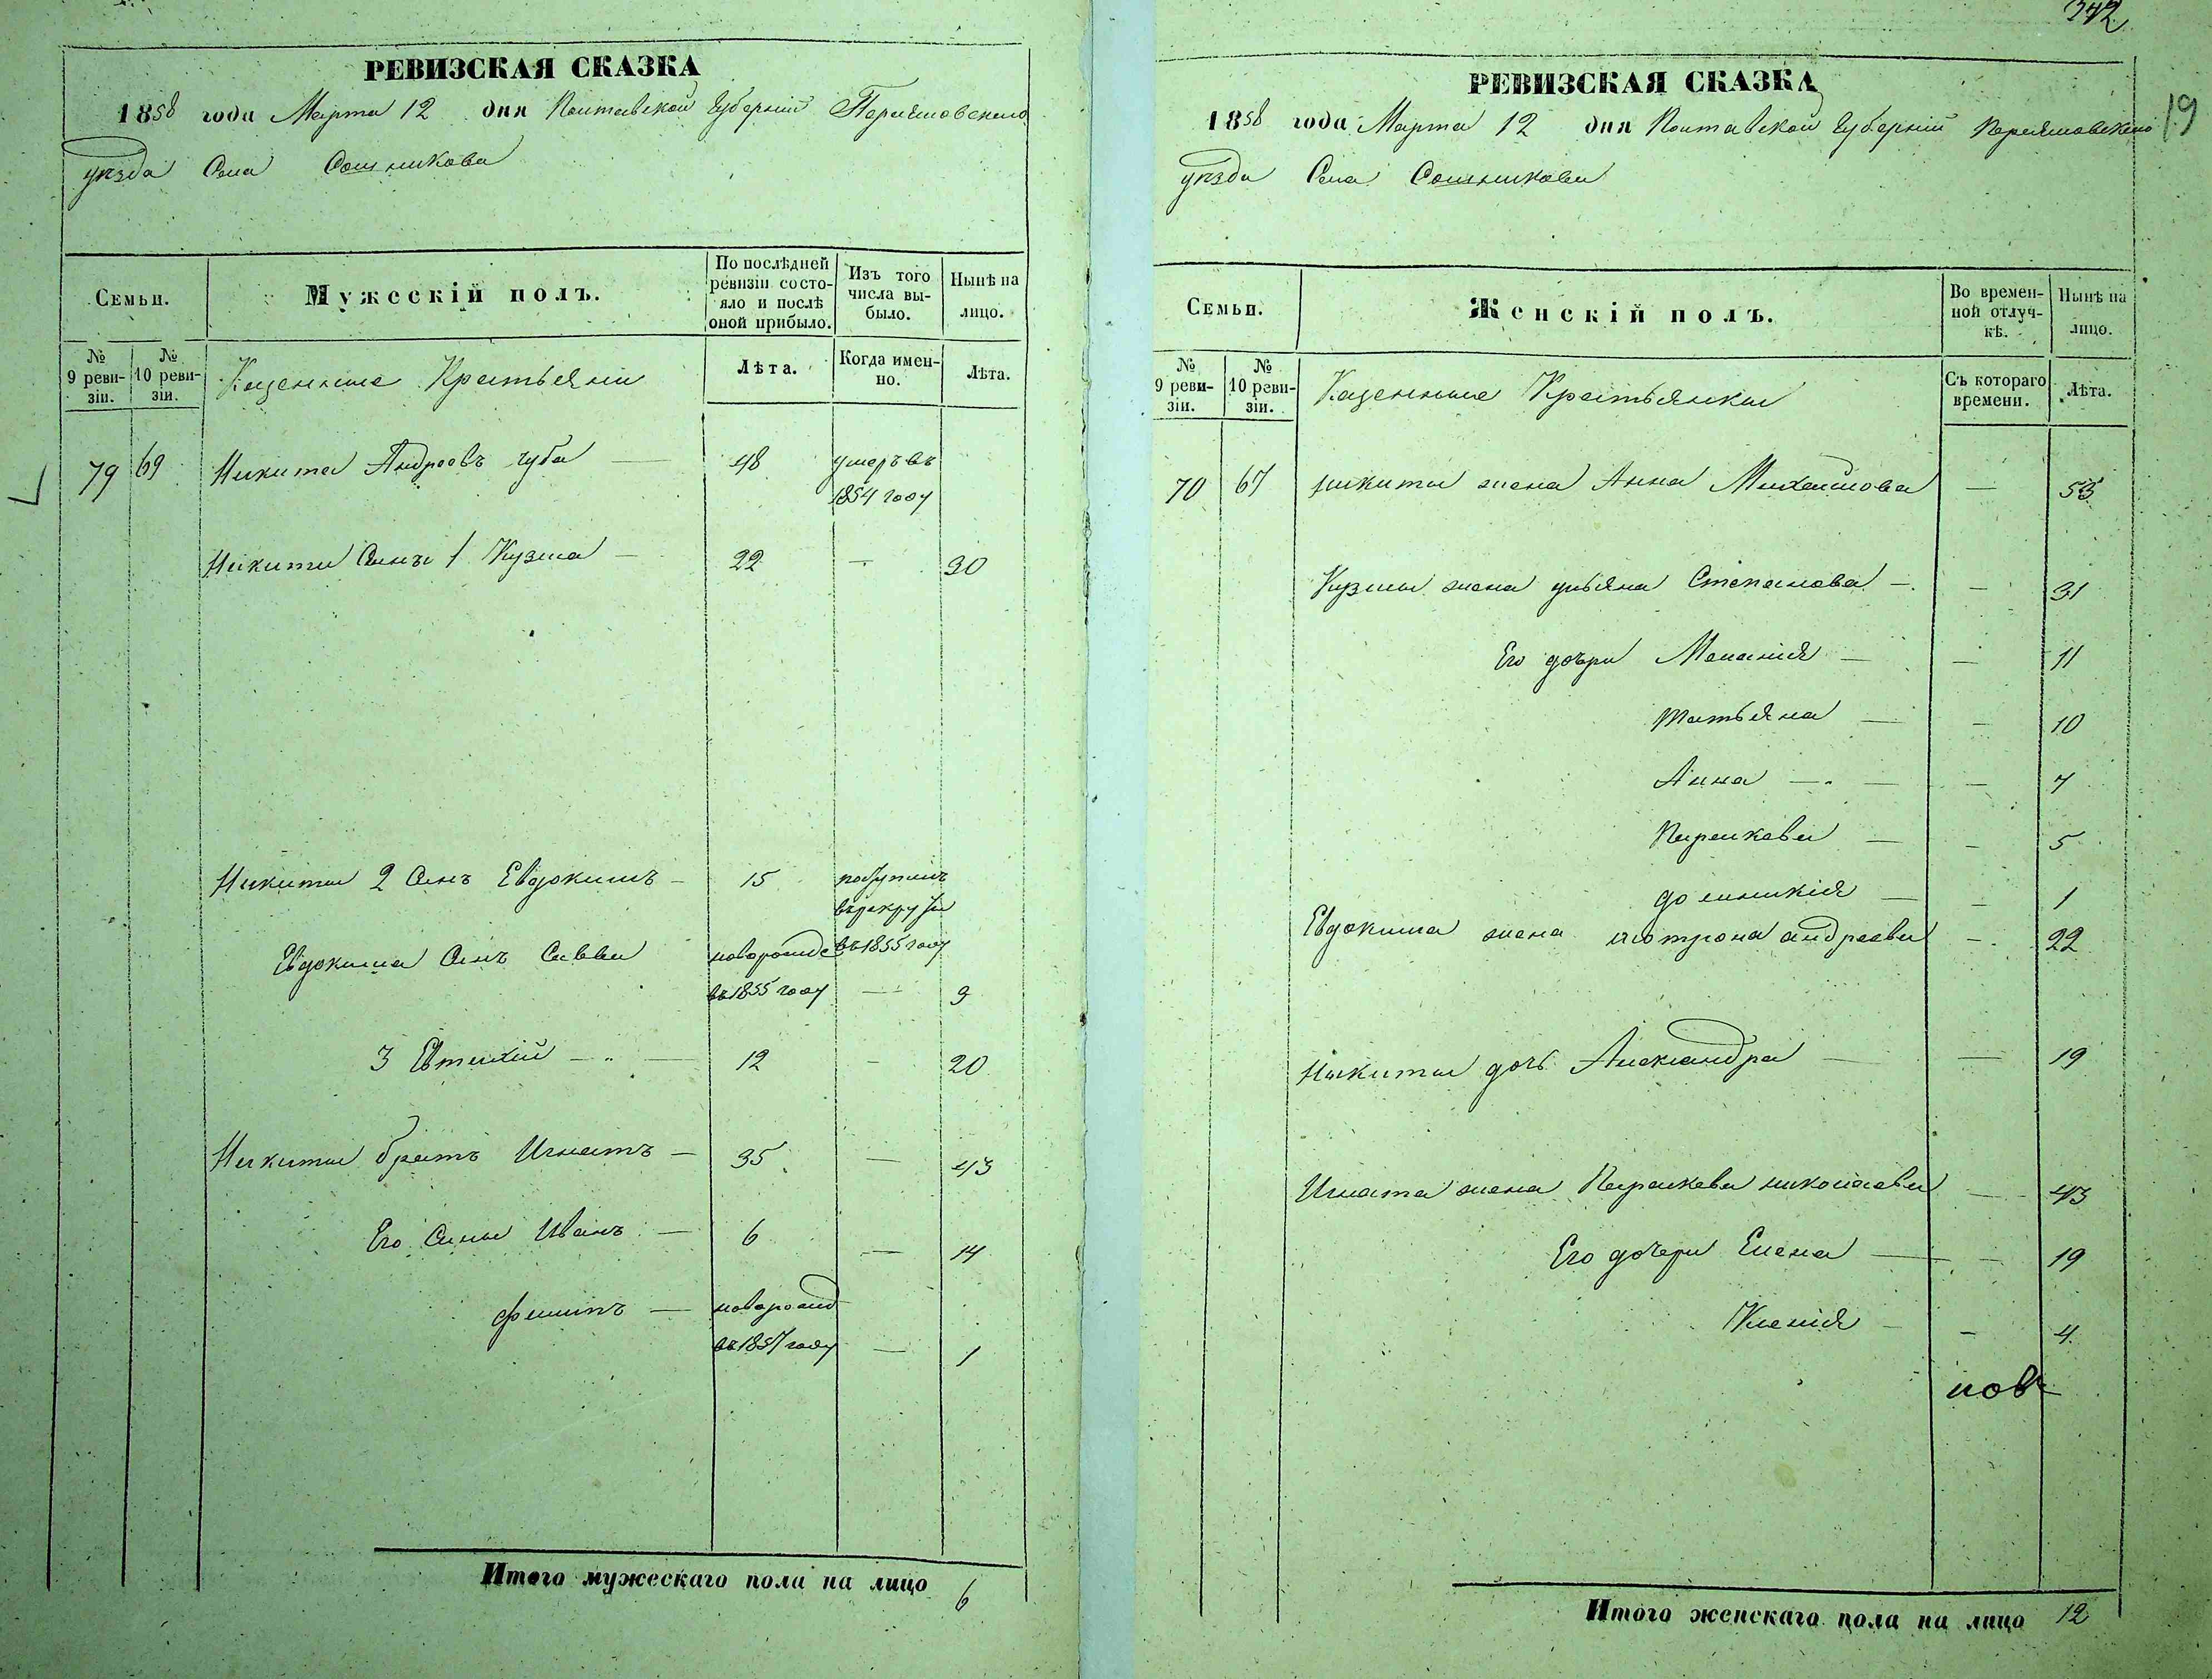 РЕВИЗСКАЯ СКАЗКА
1858 года Марта 12 дня Полтавской Губерніи Переяславского
уѣзда Села Сошникова
Семьи.
Мужескій полъ.
По послѣдней ревизіи состояло и послѣ оной прибыло.
Изъ того числа выбыло.
Нынѣ на лицо.
№ 9 ревизіи.
№ 10 ревизіи.
Казенные Крестьяни
Лѣта.
Когда именно.
Лѣта.
79 69 Никита Андреевъ чуба — 48 умеръ въ
1854 году
Никиты Сынъ 1 Кузма — 22 — 30
Никиты 2 Сынъ Евдокимъ — 15 поступилъ
въ рекруты
Евдокима Сынъ Савва новорожде въ 1855 году
въ 1855 году — 3
3 Евтихій — 12 — 20
Никиты братъ Игнатъ — 35 — 43
Его Сины Иванъ — 6 — 14
филипъ — новорожд
въ 1857 году — 1
Итого мужескаго пола на лицо 6
342
19
РЕВИЗСКАЯ СКАЗКА
1858 года Марта 12 дня Полтавской Губерніи Переяславского
уѣзда Села Сошникова
Семьи.
Женскій полъ.
Во временной отлучкѣ.
Нынѣ на лицо.
№ 9 ревизіи.
№ 10 ревизіи.
Казенные Крестьянки
Съ котораго времени.
Лѣта.
70 67 никиты жена Анна Михайлова — 53
Кузмы жена ульяна Степанова — — 31
Его дочри Меланія — — 11
татьяна — — 10
Анна — — 7
Параскева — — 5
до миникія — — 1
Евдокима жена мотрона андреева — 22
Никиты дочь Александра — — 19
Игната жена Параскева николаева — 43
Его дочери Елена — — 19
Ксенія — — 4
нов
Итого женскаго пола на лицо 12